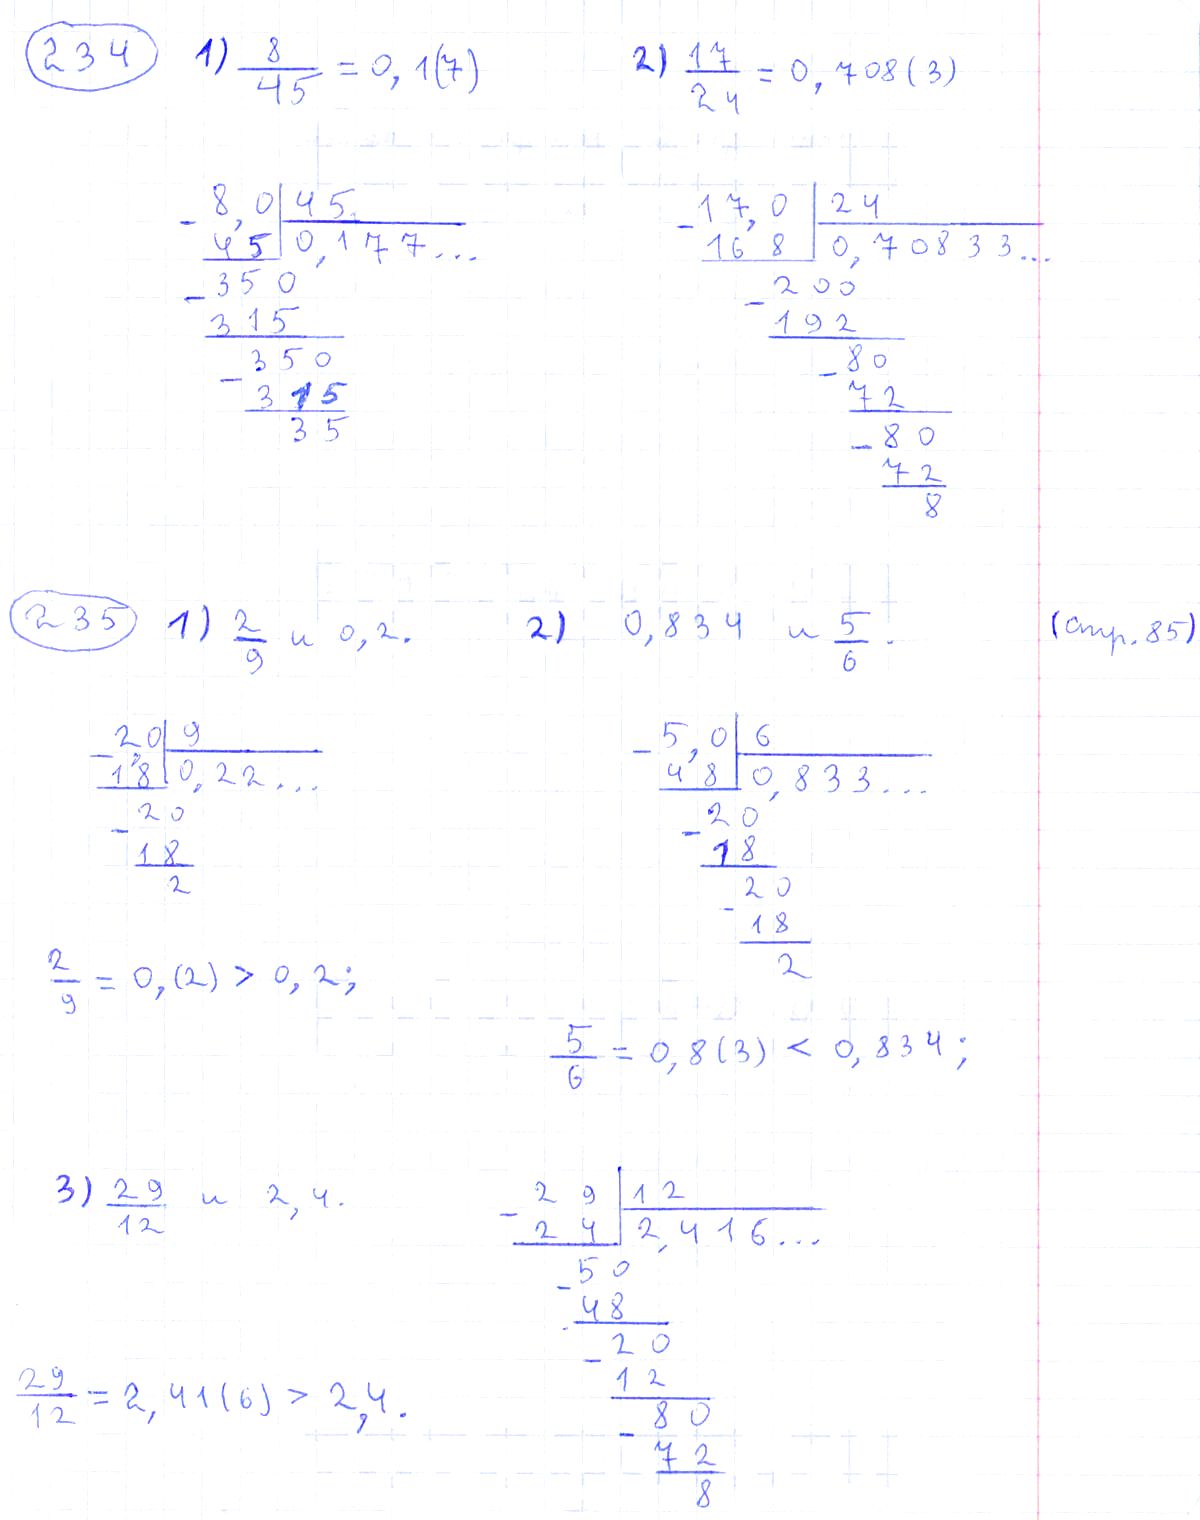 234 1) 8/45 = 0,1(7) 2) 17/24 = 0,708(3)
- 8,0 | 45 - 17,0 | 24
45 | 0,177... 168 | 0,70833...
- 350 - 200
315 192
- 350 - 80
315 72
35 - 80
72
8
235 1) 2/9 и 0,2. 2) 0,834 и 5/6. (стр. 85)
- 2,0 | 9 - 5,0 | 6
1 8 | 0,22... 48 | 0,833...
- 20 - 20
18 18
2 - 20
18
2
2/9 = 0,(2) > 0,2;
5/6 = 0,8(3) < 0,834;
3) 29/12 и 2,4. - 29 | 12
24 | 2,416...
- 50
48
- 20
12
- 80
72
8
29/12 = 2,41(6) > 2,4.